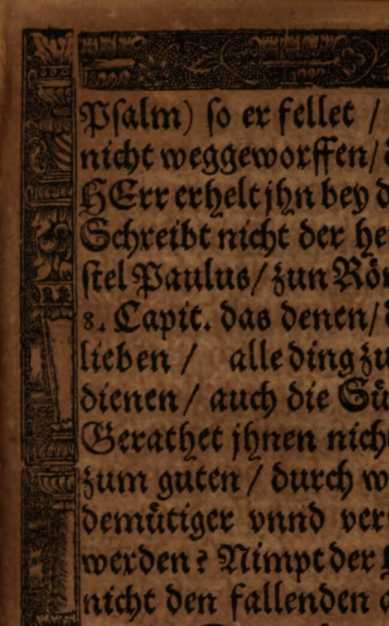 Psalm) so er fellet /
nicht weggeworffen/
HErr erhelt jhn bey
Schreibt nicht der
stel Paulus/ zun
8. Capit. das denen/
lieben / alle ding
dienen / auch die
Gerathet jhnen
zum guten / durch
demütiger vnnd
werden? Nimpt der
nicht den fallenden